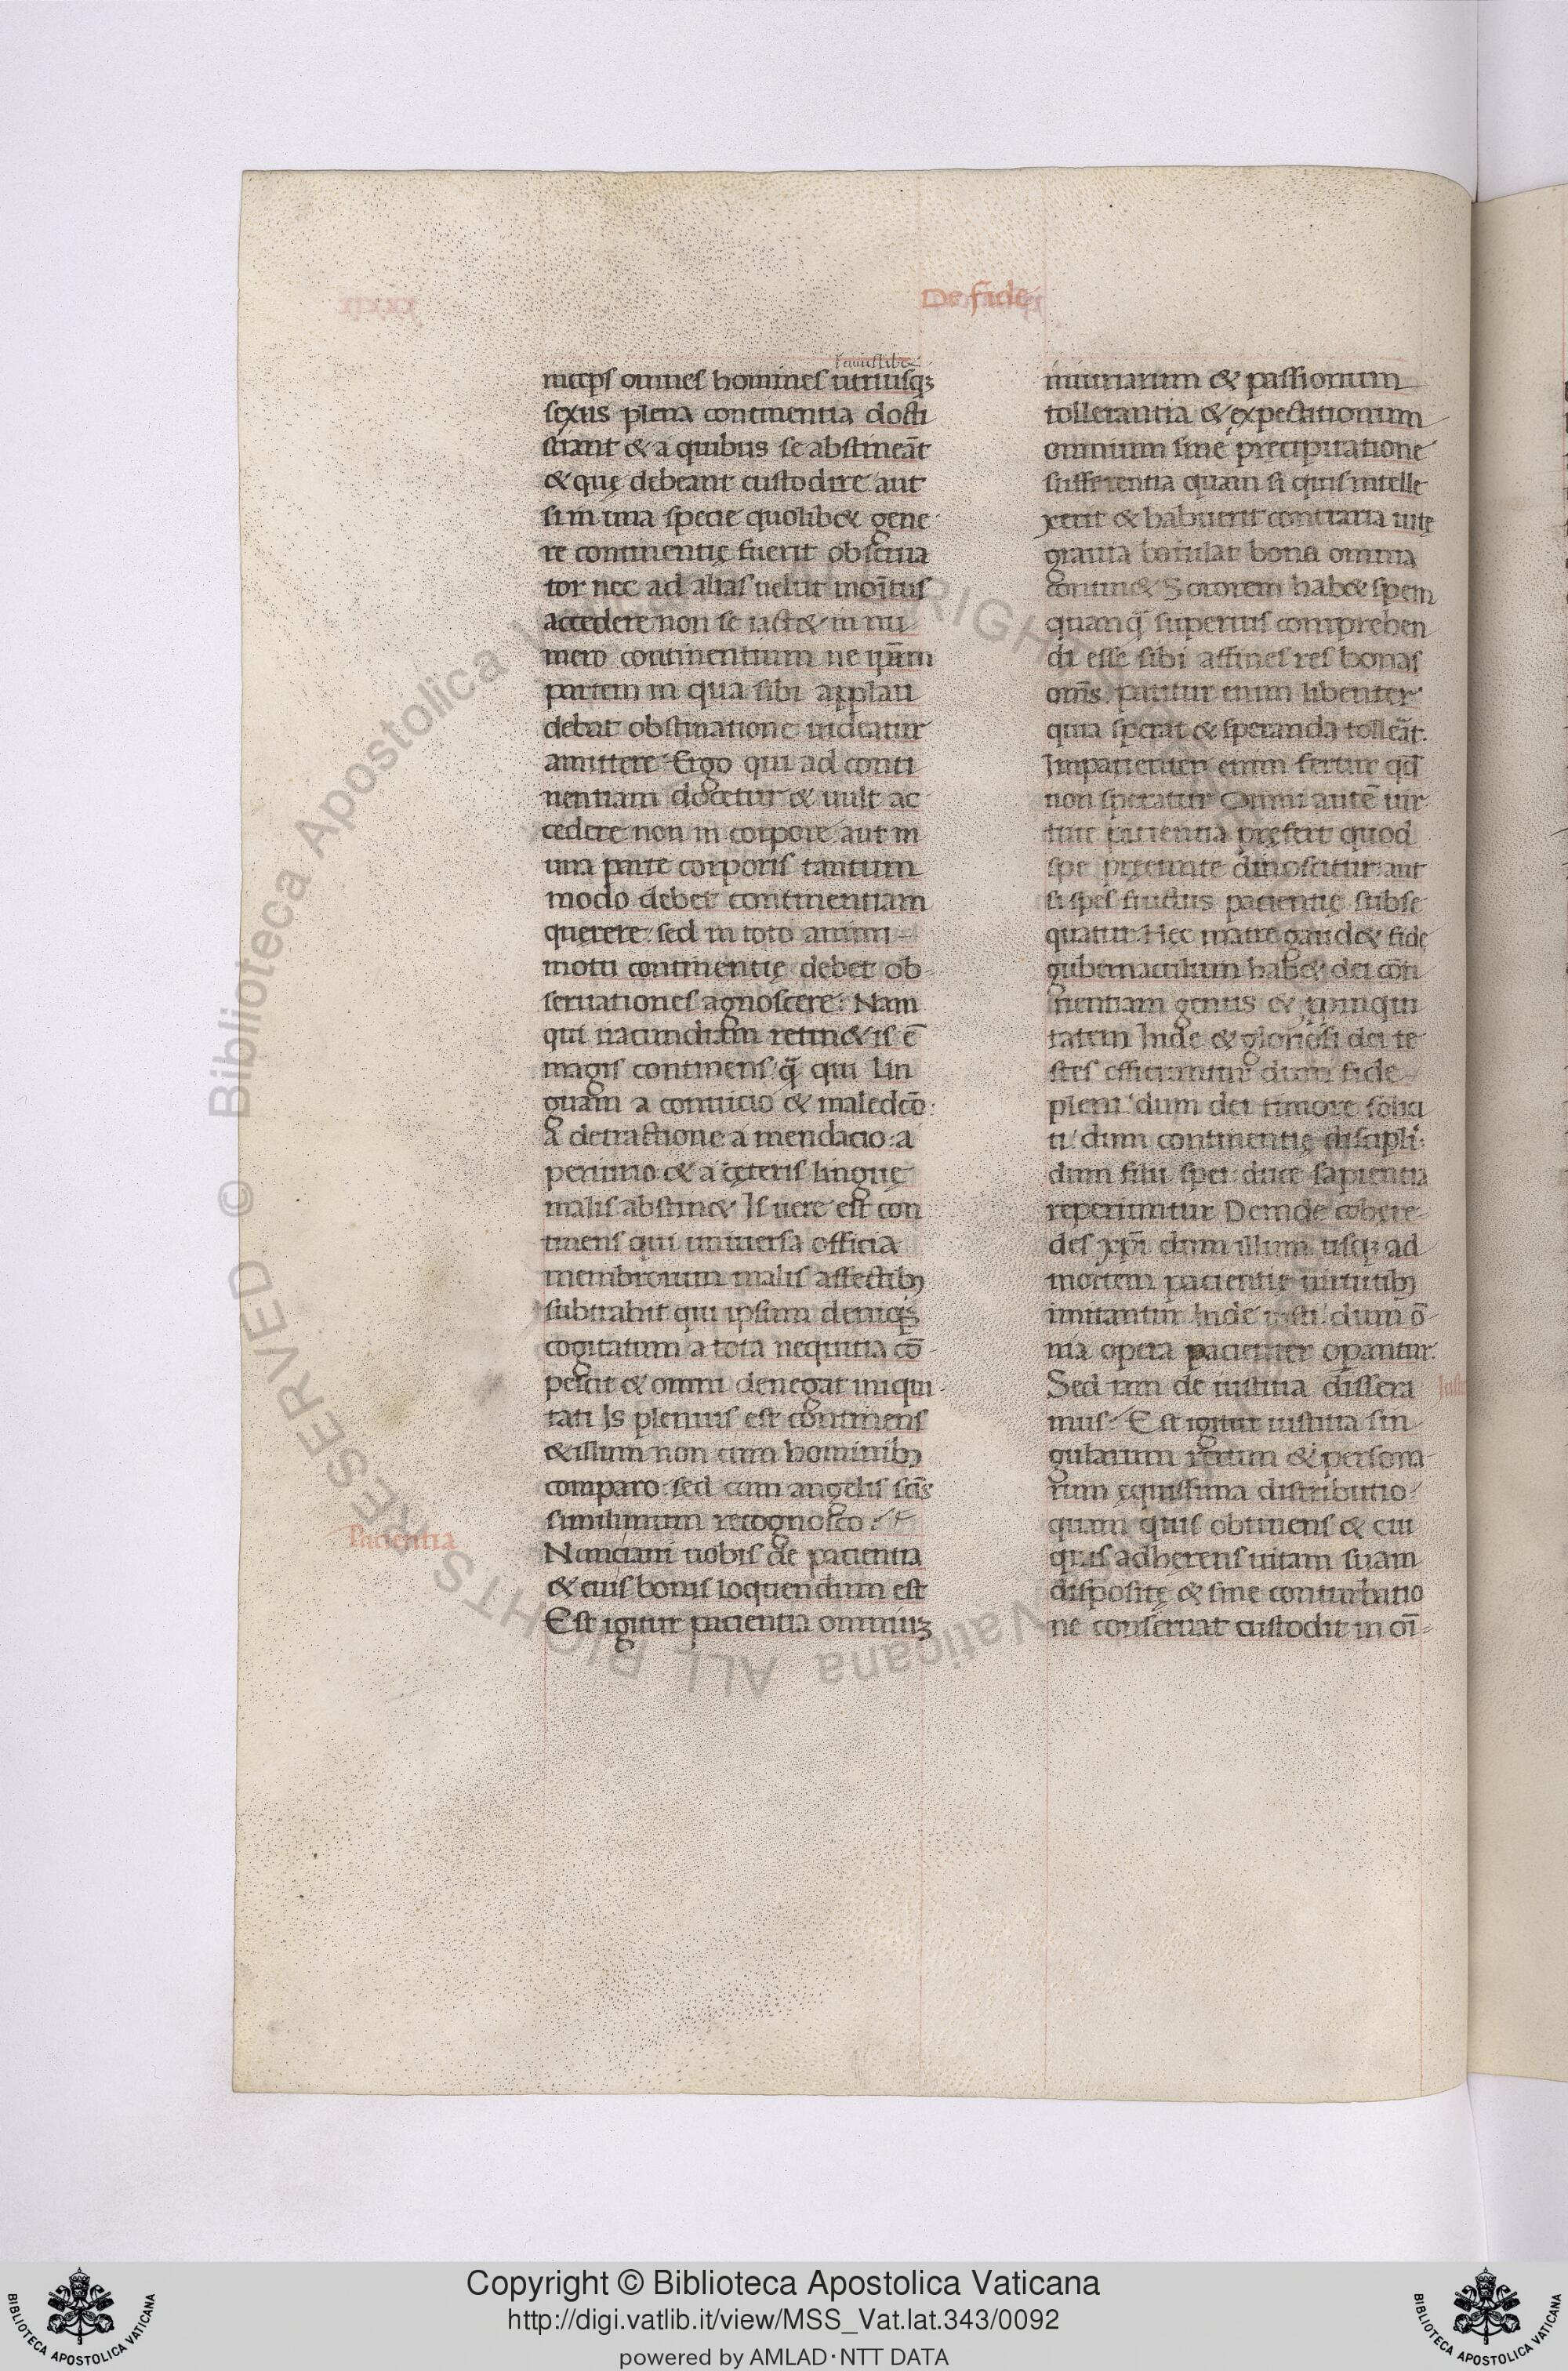 De fide
inceps omnes homines utriusq;
sexus plena continentia docti
sciant & a quibus se abstineāt
& quę debeant custodire aut
si in una specie quolib& gene
re continentię fuerit obserua
tor nec ad alias uelut inoītus
accedere non se iact& in nu
mero continentium ne ip̄am
partem in qua sibi applau
debat obstinatione uideatur
amittere. Ergo qui ad conti
nentiam docetur & uult ac
cedere non in corpore aut in
una parte corporis tantum
modo debet continentiam
querere: sed in toto animi
motu continentię debet ob
seruationes agnoscere: Nam
qui iracundiam retin& is ē
magis continens q̄ qui lin
guam a conuicio & maledcō
a detractione a mendacio: a
periurio & a cęteris linguę
malis abstin& Is uere est con
tinens qui uniuersa officia
membrorum malis affectib;
subtrahit qui ipsum deniq;
cogitatum a tota nequitia cō
pescit & omni denegat iniqui
tati Is plenius est continens
& illum non cum hominib;
comparo: sed cum angelis sc̄is
simillimum recognosco:
Pacientia
Nunc iam uobis de pacientia
& eius bonis loquendum est
Est igitur pacientia omniū
iniuriarum & passionum
tollerantia & expectationum
omnium sine pręcipitatione
sufferentia quam si quis intelle
xerit & habuerit contraria uitę
grauia baiulat bona omnia
contin& Sororem hab& spem
quanq̄ superius comprehen
di esse sibi affines res bonas
om̄s. patitur enim libenter
quia sperat & speranda tolleāt.
Impacienter enim fertur qd̄
non speratur Omni autē uir
tute pacientia pręfert quod
spe pręeunte dinoscitur: aut
si spes fructus pacientię subse
quatur. Hęc matre gaud& fide
gubernaculum hab& dei con
tatem Inde & gloriosi dei te
stes efficiuntur dum fide
pleni dum dei timore solici
ti dum continentię discipli:
dum filii spei duce sapientia
reperiuntur Deinde cohęre
des xp̄i dum illum usq; ad
mortem pacientię uirtutib;
imitantur. Inde iusti dum ō
nia opera pacienter opantur.
Sed iam de iustitia dissera
mus: Est igitur iustitia sin
gularum rerum & persona
rum ęquissima distributio
quam quis obtinens & cui
quis adherens uitam suam
dispositę & sine conturbatio
ne conseruat custodit in oī
© Biblioteca Apostolica Vaticana ALL RIGHTS RESERVED
Copyright © Biblioteca Apostolica Vaticana
http://digi.vatlib.it/view/MSS_Vat.lat.343/0092
powered by AMLAD·NTT DATA
BIBLIOTECA APOSTOLICA VATICANA
BIBLIOTECA APOSTOLICA VATICANA